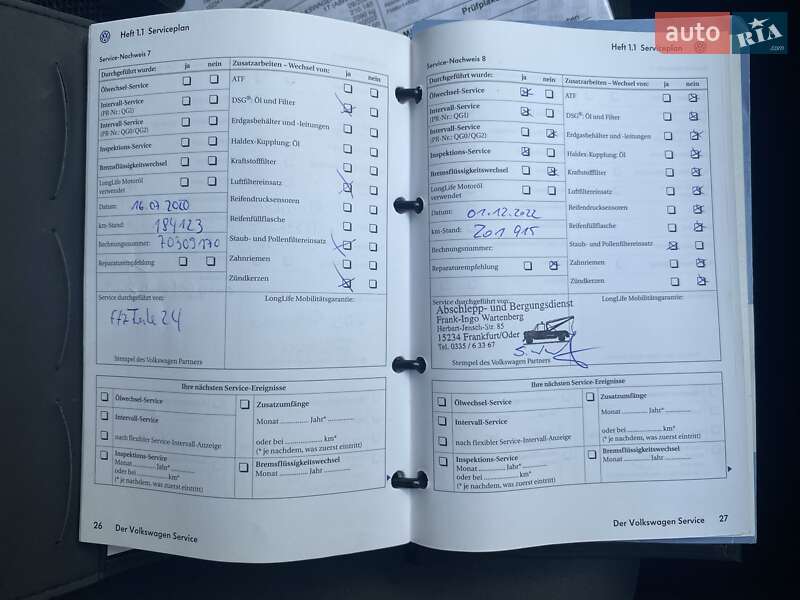 auto
RIA
.com
Prüfplake
Heft 1.1 Serviceplan
Service-Nachweis 7
Durchgeführt wurde: ja nein
Ölwechsel-Service
Intervall-Service
(PR-Nr.: QG1)
Intervall-Service
(PR-Nr.: QG0/QG2)
Inspektions-Service
Bremsflüssigkeitswechsel
LongLife Motoröl
verwendet
Datum: 16.07.2020
km-Stand: 184123
Rechnungsnummer: 70309170
Reparaturempfehlung
Zusatzarbeiten – Wechsel von: ja nein
ATF
DSG®: Öl und Filter
Erdgasbehälter und -leitungen
Haldex-Kupplung: Öl
Kraftstofffilter
Luftfiltereinsatz
Reifendrucksensoren
Reifenfüllflasche
Staub- und Pollenfiltereinsatz
Zahnriemen
Zündkerzen
Service durchgeführt von:
LongLife Mobilitätsgarantie:
24
Stempel des Volkswagen Partners
Ihre nächsten Service-Ereignisse
Ölwechsel-Service
Intervall-Service
nach flexibler Service-Intervall-Anzeige
Inspektions-Service
Monat ............ Jahr* ............
oder bei ............ km*
(* je nachdem, was zuerst eintritt)
Zusatzumfänge
Monat ............ Jahr* ............
oder bei ............ km*
(* je nachdem, was zuerst eintritt)
Bremsflüssigkeitswechsel
Monat ............ Jahr ............
26 Der Volkswagen Service
Heft 1.1 Serviceplan
Service-Nachweis 8
Durchgeführt wurde: ja nein
Ölwechsel-Service
Intervall-Service
(PR-Nr.: QG1)
Intervall-Service
(PR-Nr.: QG0/QG2)
Inspektions-Service
Bremsflüssigkeitswechsel
LongLife Motoröl
verwendet
Datum: 01.12.2022
km-Stand: 201 915
Rechnungsnummer:
Reparaturempfehlung
Zusatzarbeiten – Wechsel von: ja nein
ATF
DSG®: Öl und Filter
Erdgasbehälter und -leitungen
Haldex-Kupplung: Öl
Kraftstofffilter
Luftfiltereinsatz
Reifendrucksensoren
Reifenfüllflasche
Staub- und Pollenfiltereinsatz
Zahnriemen
Zündkerzen
Service durchgeführt von:
LongLife Mobilitätsgarantie:
Abschlepp- und Bergungsdienst
Frank-Ingo Wartenberg
Herbert-Jensch-Str. 85
15234 Frankfurt/Oder
Tel. 0335 / 6 33 67
Stempel des Volkswagen Partners
Ihre nächsten Service-Ereignisse
Ölwechsel-Service
Intervall-Service
nach flexibler Service-Intervall-Anzeige
Inspektions-Service
Monat ............ Jahr* ............
oder bei ............ km*
(* je nachdem, was zuerst eintritt)
Zusatzumfänge
Monat ............ Jahr* ............
oder bei ............ km*
(* je nachdem, was zuerst eintritt)
Bremsflüssigkeitswechsel
Monat ............ Jahr ............
Der Volkswagen Service 27